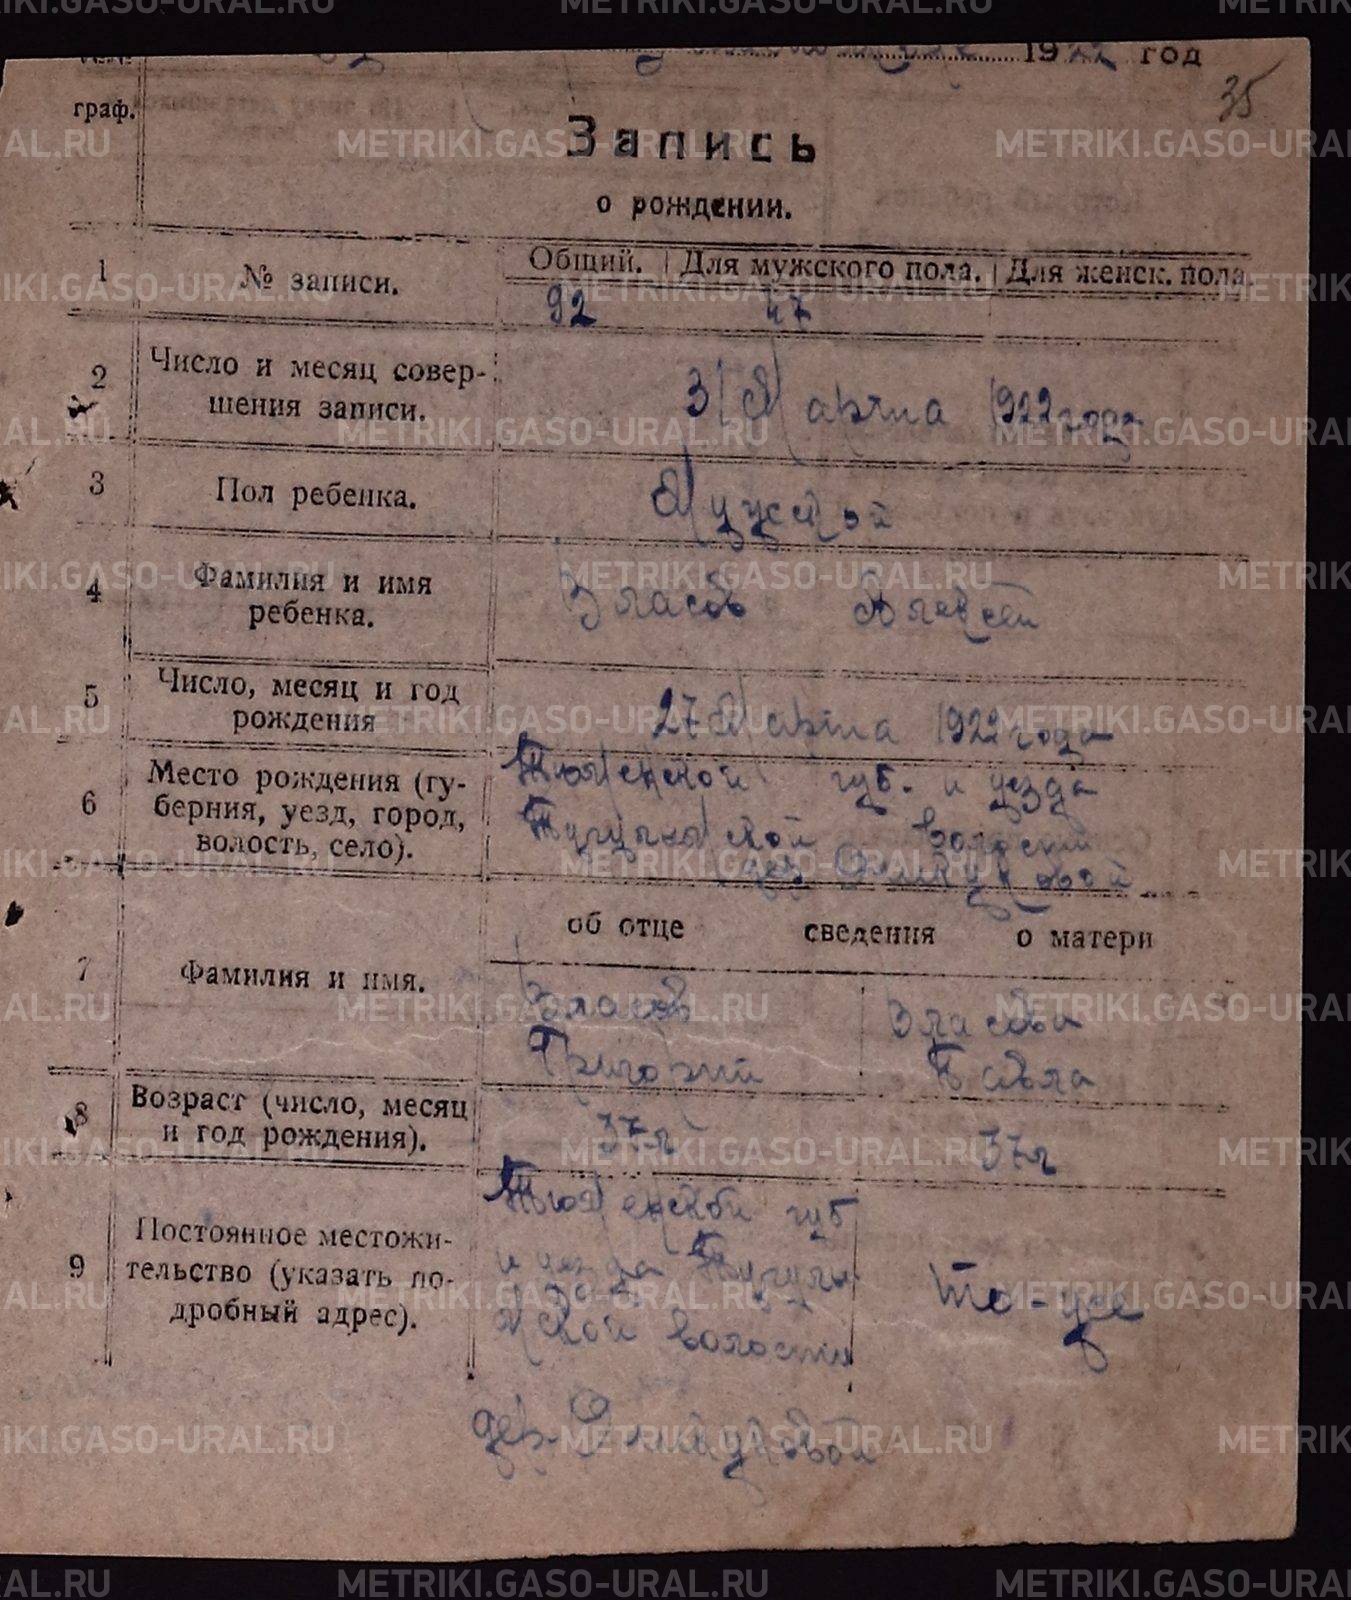 1922 год
35
граф.
Запись
о рождении.
1 № записи. Общий. Для мужского пола. Для женск. пола.
92 47
2 Число и месяц совер-
шения записи. 31 Марта 1922 года
3 Пол ребенка. Мужской
4 Фамилия и имя
ребенка. Власов Алексей
5 Число, месяц и год
рождения 27 Марта 1922 года
6 Место рождения (гу-
берния, уезд, город,
волость, село). Тюменской губ. и уезда
волости
дер.
об отце сведения о матери
7 Фамилия и имя. Власов Власова
Григорий Павла
8 Возраст (число, месяц
и год рождения). 37 л 37 л
9 Постоянное местожи-
тельство (указать по-
дробный адрес). Тюменской губ
и уезда
ской волости
дер.
то-же
METRIKI.GASO-URAL.RU